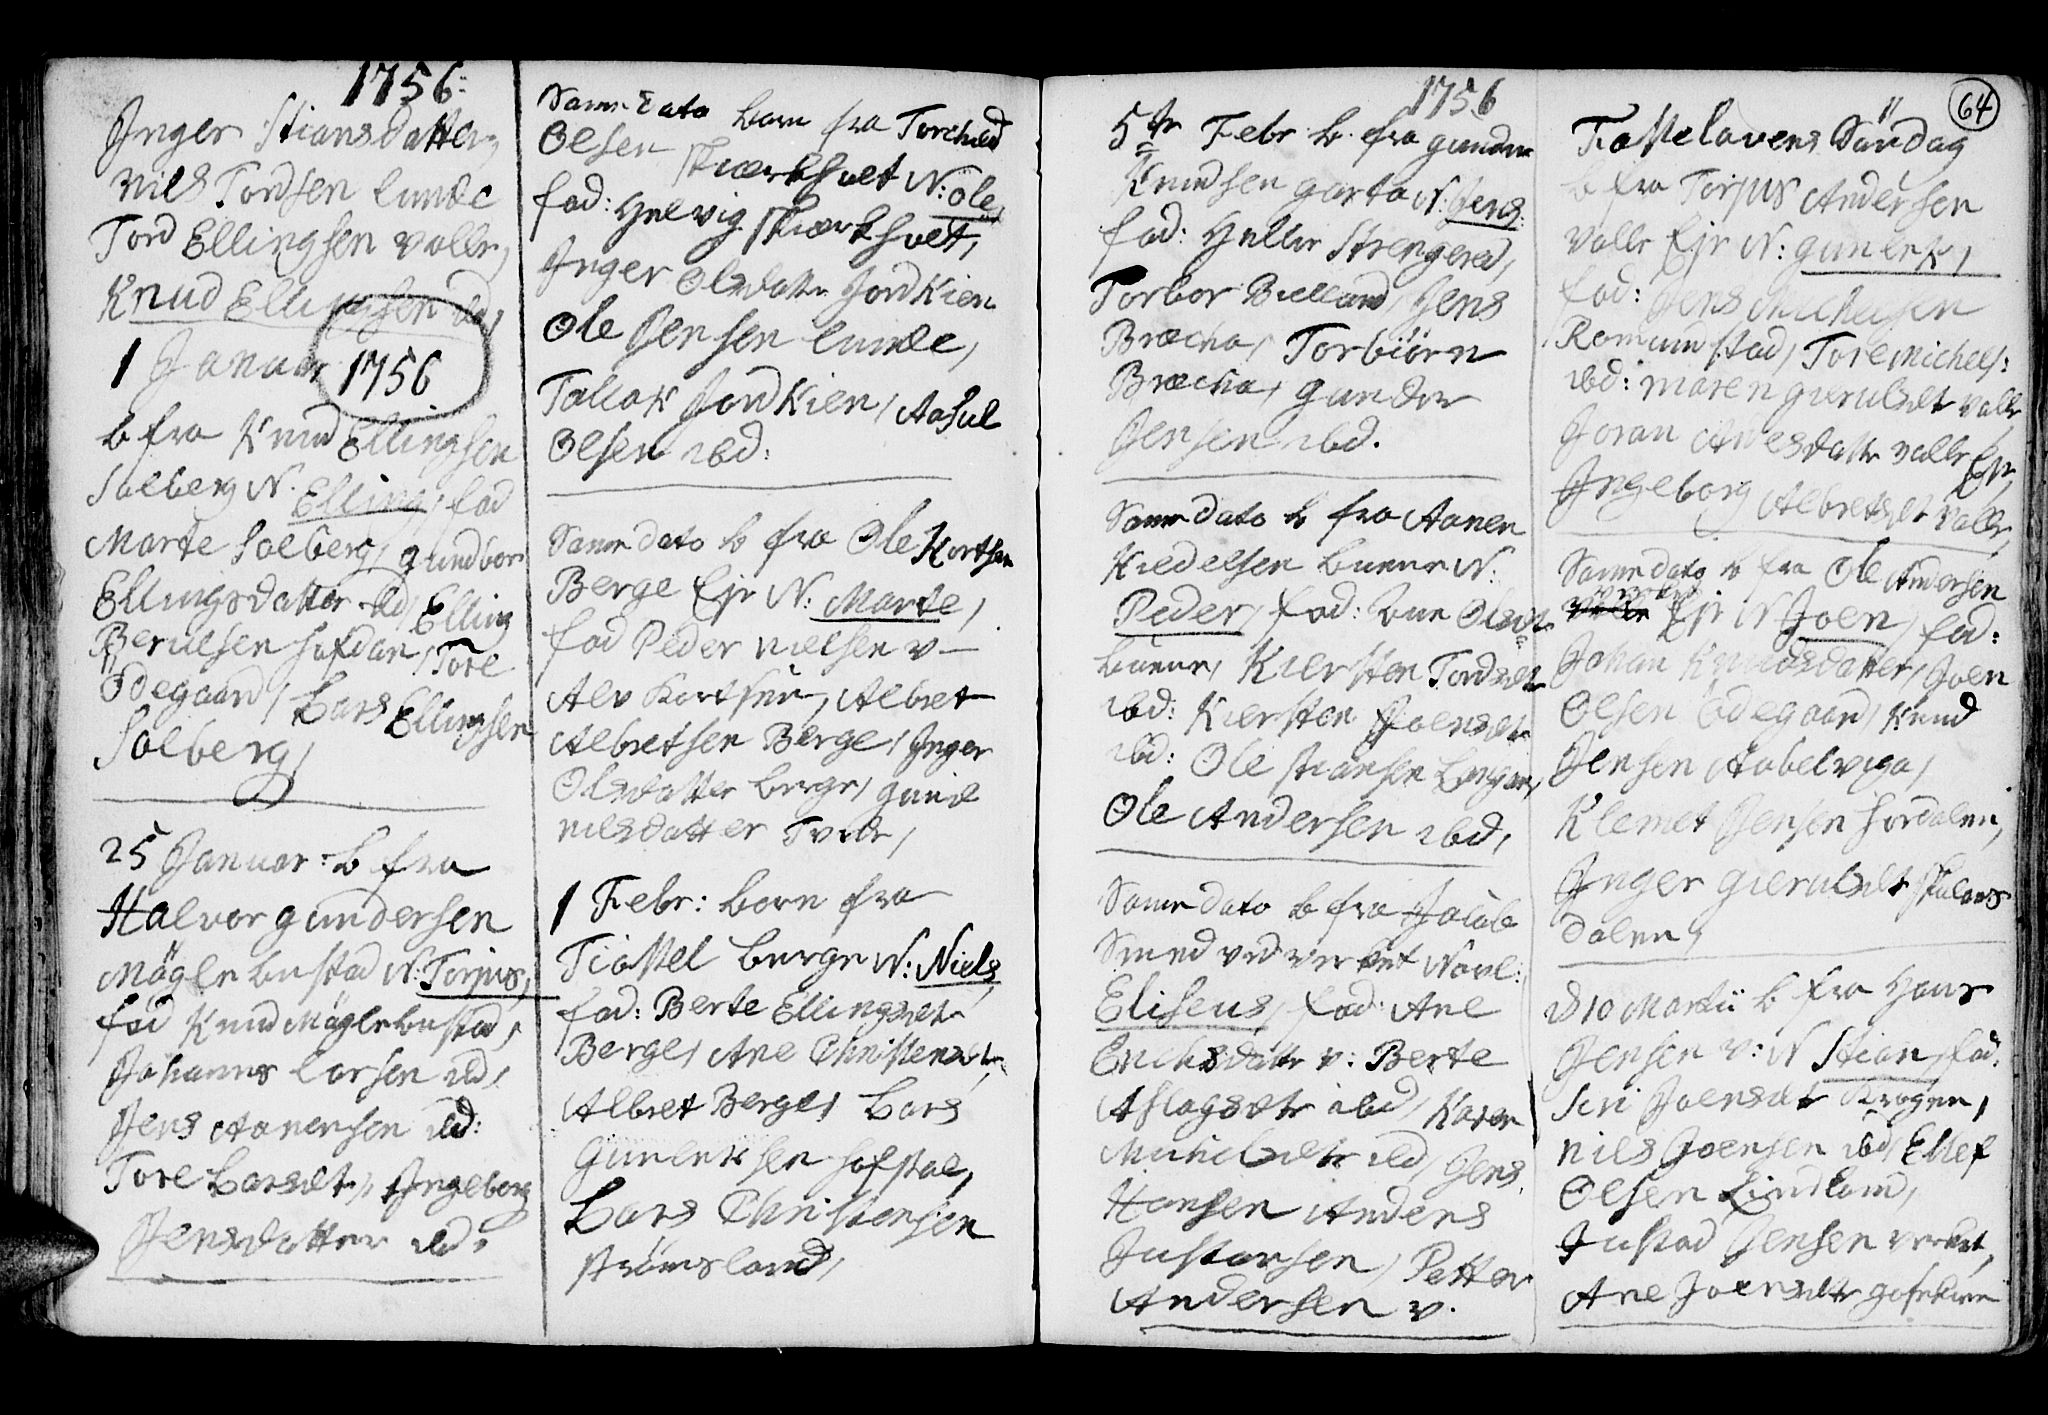 1756
Inger Stiansdatter,
Nils Tordsen Lunde
Tord Ellingsen valle,
Knud Ellingsen ibd,
1 Januar 1756
b fra Knud Ellingsen
Solberg N. Elling, fad
Marte Solberg, gundbor
Ellingsdatter ibd, Elling
Berulsen hofdan, Tore
Ödegaard, Lars Ellingsen
Solberg,
25 Januar b fra
Halvor gundersen
Møglebustad N: Torjus,
fad Knud Møglebustad,
Johannes Larsen ibd,
Jens Aanensen ibd:
Tore Larsdt, Ingeborg
Jensdatter ibd.
Samme Dato born fra Torchild
Olsen skiærkholt N: Ole,
fad: Helvig skiærkholt,
Inger Olsdatter Jordkien
Ole Jensen Lunde,
Tallak Jordkien, Aasul
Olsen ibd:
Samme dato b fra Ole Kortsen
Berge Eje N: Marte,
fad Peder nielsen v—
Alv Kortsen, Albret
Albretsen Berge, Inger
Olsdatter berge, gunild
nilsdatter Tvede,
1 Febr: born fra
Tiostel berge N: Niels,
fad: Berte Ellingsdt
Berge, Ane Christensdt,
Albret Berge, Lars
Gunleksen hofstol,
Lars Christensen
strømsland,
1756
5te Febr b. fra gunder
Knudsen garta N: Jens:
fad: Helle Strengered,
Torbor Bielland, Jens
Brecka, Torbiörn
Brecka, gunder
Jensen ibd.
Samme dato b fra Aanen
Kiedelsen buene N:
Peder, fad: bue Olsdt
buene, Kiersten Tordsdt
ibd: Kiersten Joensdt
ibd: Ole stiansen
Ole Andersen ibd,
Samme dato b fra Jacob
Smed ved verket Navl:
Eliseus, fad: Ane
Erichsdatter v: Berte
Aslagsdtr ibd, Karen
Michelsdtr ibd, Jens
Hansen Anders
Justansen, Petter
Andersen v.
64
Fastelavens Søndag
b fra Torjus Andersen
valle Eje N: gunlek,
fad: Jens Michelsen
Romundstad, Tore Michels:
ibd: maren gierulsdt valle
Joran Alvesdatter valle Eje,
Ingeborg Albretsdt valle,
Samme dato b fra Ole Andersen
Eje N Joen, fad:
Johan Knudsdatter, Joen
Olsen Ödegaard, Knud
Jensen Aabelviga,
Klemet Jensen hordalen,
Inger gierulsdt
dalen,
d 10 Martii b fra Hans
Jensen v: N Stian, fad.
Siri Joensdt Krogen,
nils Joensen ibd, Ellef
Olsen Lindland,
Justad Jensen verket,
Ane Joensdtr